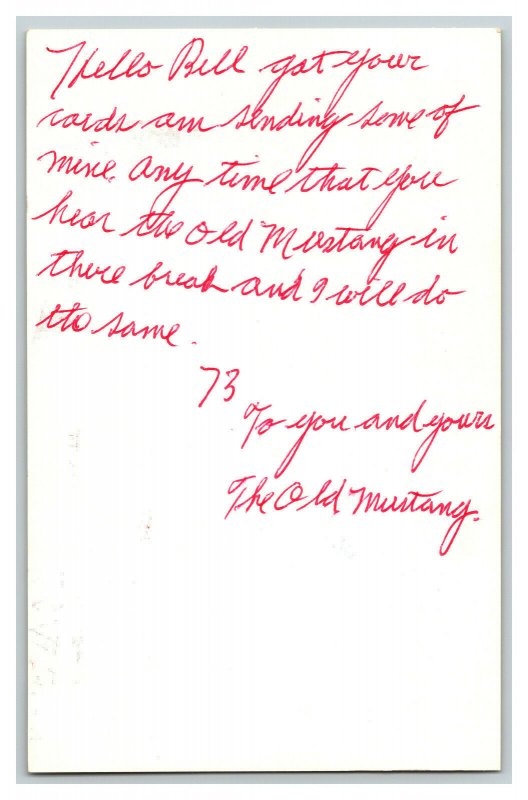 Hello Bill got your
cards am sending some of
mine. Any time that you
hear the Old Mustang in
there break and I will do
the same.
73
To you and yours
The Old Mustang.